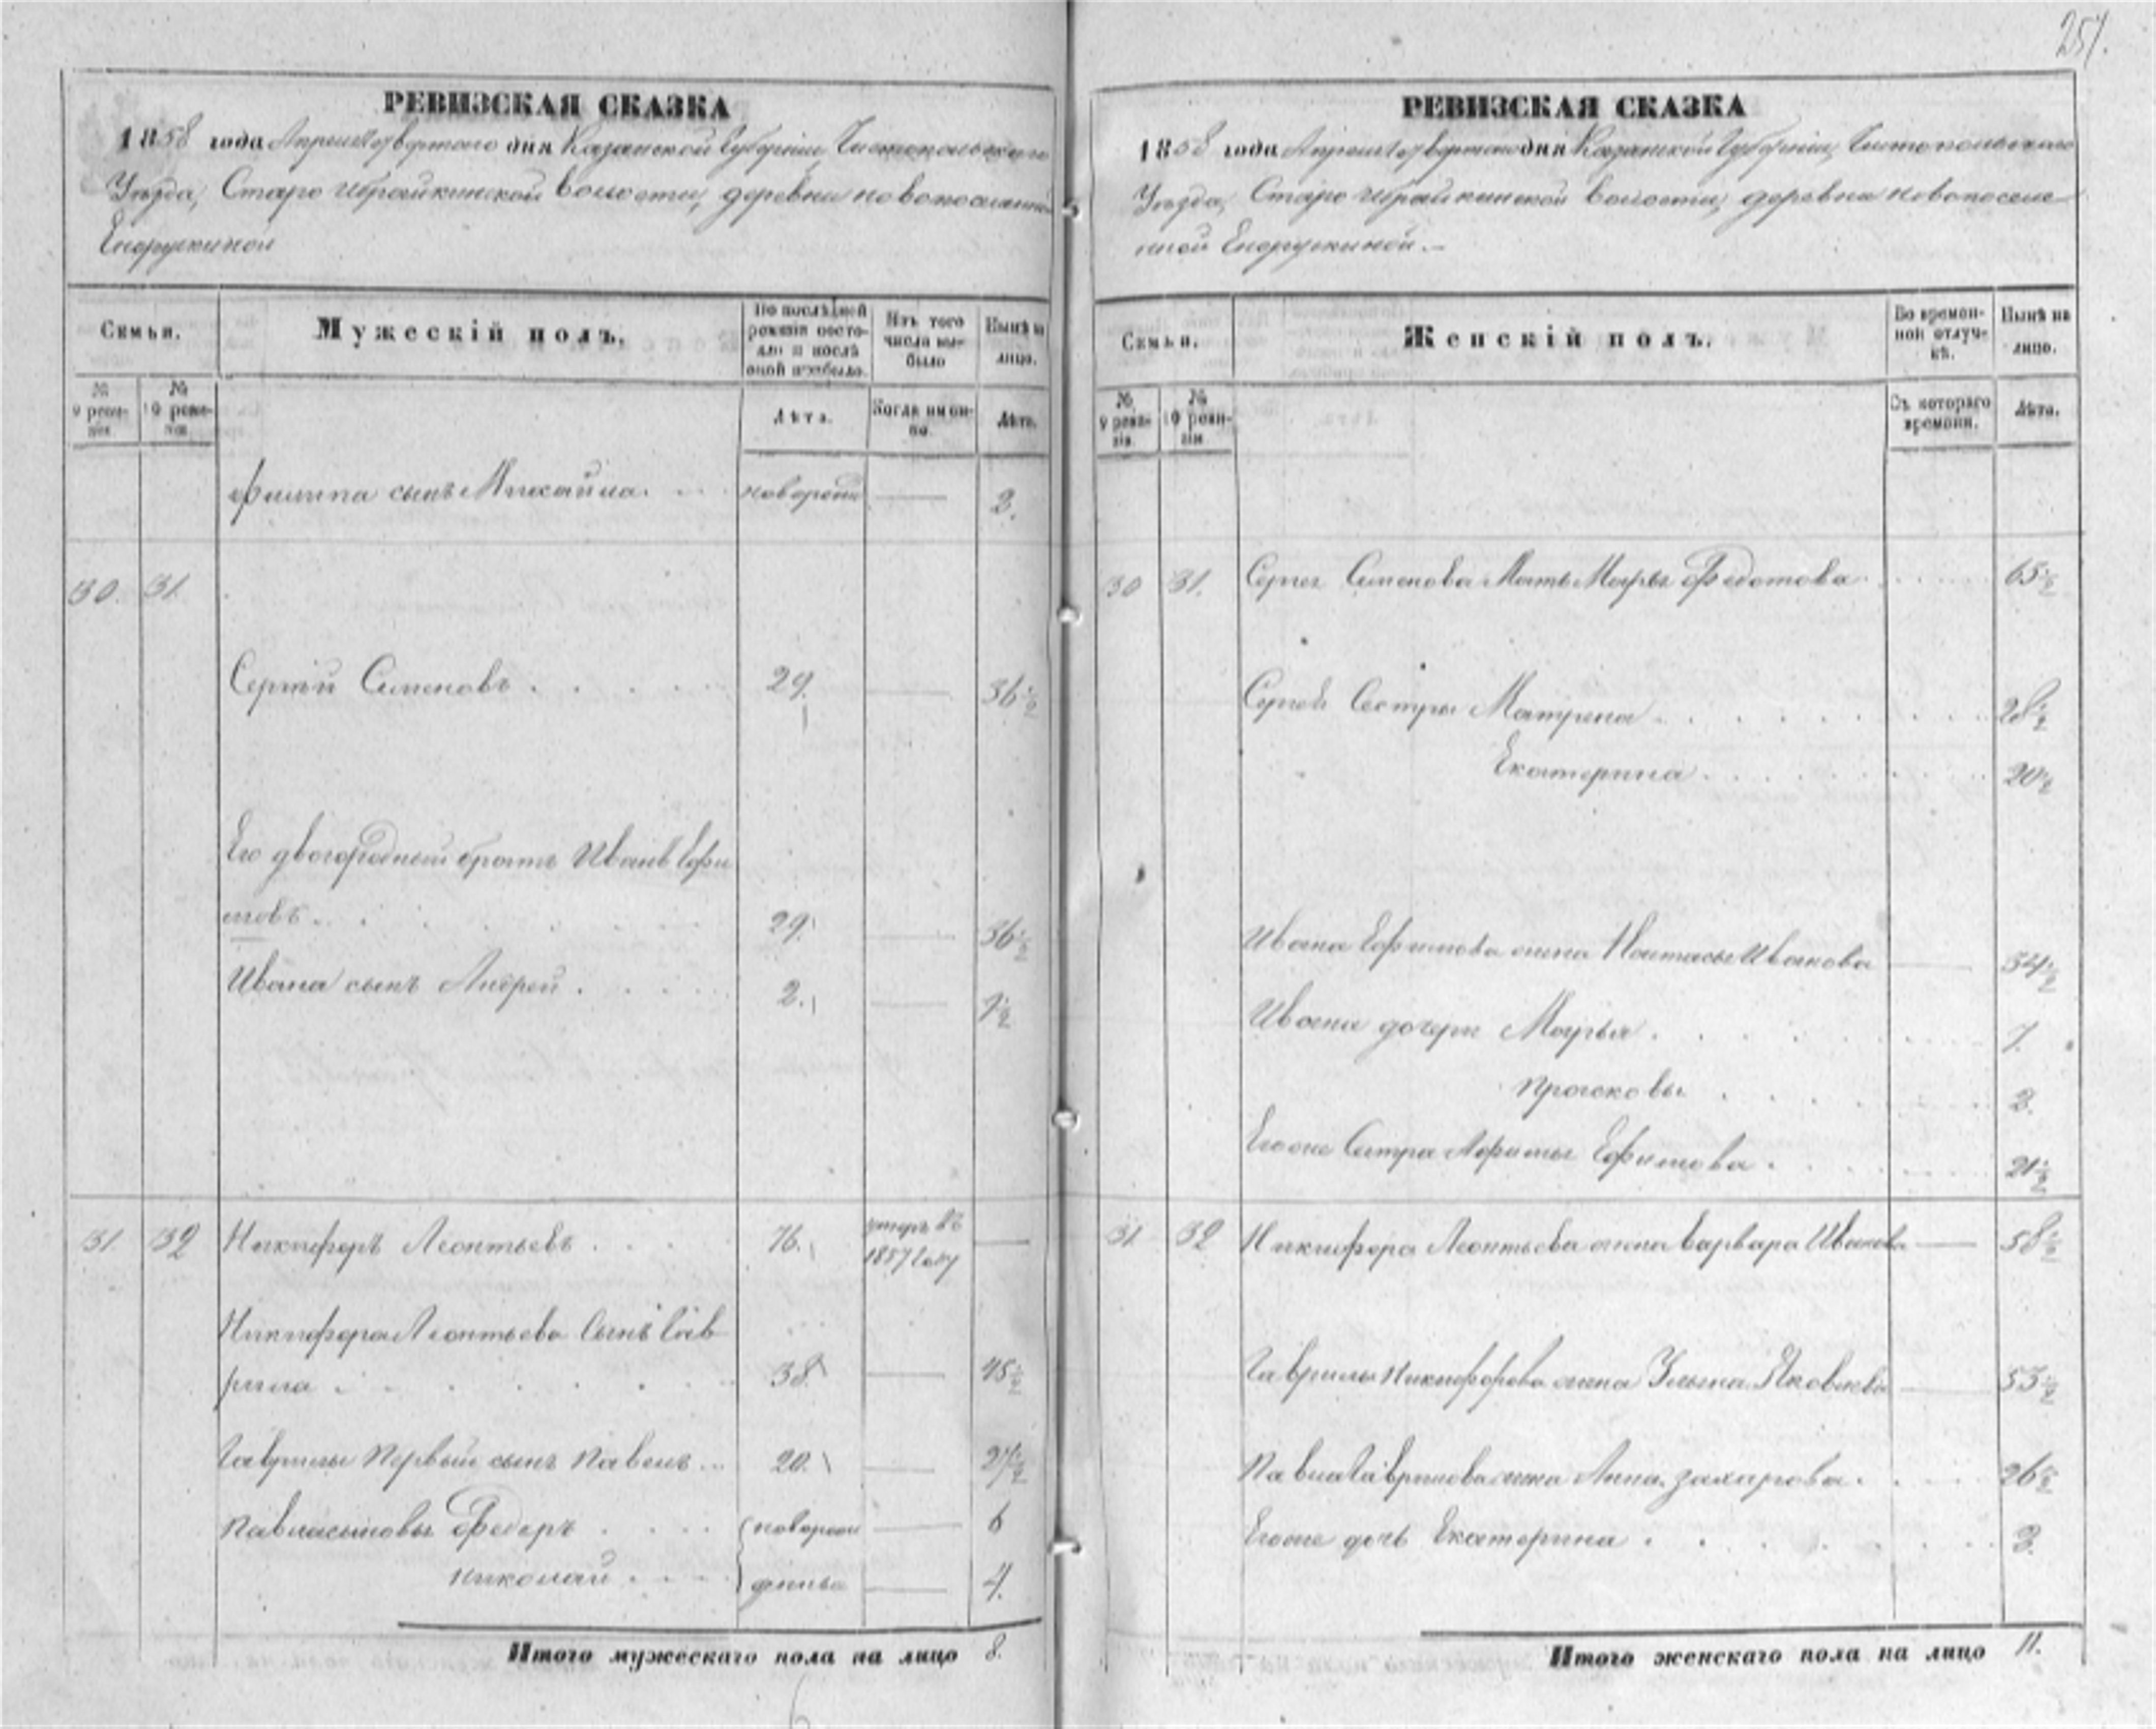 257.
РЕВИЗСКАЯ СКАЗКА
1858 года Апреля четвертого дня Казанской Губернии, Чистопольского
Уезда, Старо Ибрайкинской волости, деревни новопоселенной
Енорускиной
Семьи.
Мужескій полъ.
По послѣдней ревизіи состояло и послѣ оной прибыло.
Изъ того числа выбыло
Нынѣ на лицо.
№ 9 ревизіи.
№ 10 ревизіи.
Лѣта.
Когда именно.
Лѣта.
Филипа сынъ Михайла. новорожд — 2.
30. 31.
Сергѣй Семеновъ 29. — 36½
Его двоюродный братъ Иванъ Ефи
мовъ 29. — 36½
Ивана сынъ Андрей 2. — 9½
31. 32 Никифоръ Леонтьевъ 76. умеръ въ 1857 году —
Никифора Леонтьева сынъ Гав
рила 38. — 45½
Гаврилы первый сынъ Павелъ 20. — 27½
Павла сыновья Федоръ новорож — 6
Николай денные — 4.
Итого мужескаго пола на лицо 8.
РЕВИЗСКАЯ СКАЗКА
1858 года Апреля четвертого дня Казанской Губернии, Чистопольского
Уезда, Старо Ибрайкинской волости, деревни новопоселе
нной Енорускиной.—
Семьи.
Женскій полъ.
Во временной отлучкѣ.
Нынѣ на лицо.
№ 9 ревизіи.
№ 10 ревизіи
Съ котораго времени.
Лѣта.
30 31. Сергея Семенова Мать Марья Федотова 65½
Сергея Сестры Матрена 28½
Екатерина 20½
Ивана Ефимова жена Настасья Иванова — 34½
Ивана дочери Марья 7.
Прасковья 2.
Егоже Сестра Афимья Ефимова 21½
31 32 Никифора Леонтьева жена Варвара Иванова — 58½
Гаврилы Никифорова жена Ульяна Яковлева — 53½
Павла Гаврилова жена Анна Захарова 26½
Егоже дочь Екатерина 3.
Итого женскаго пола на лицо 11.